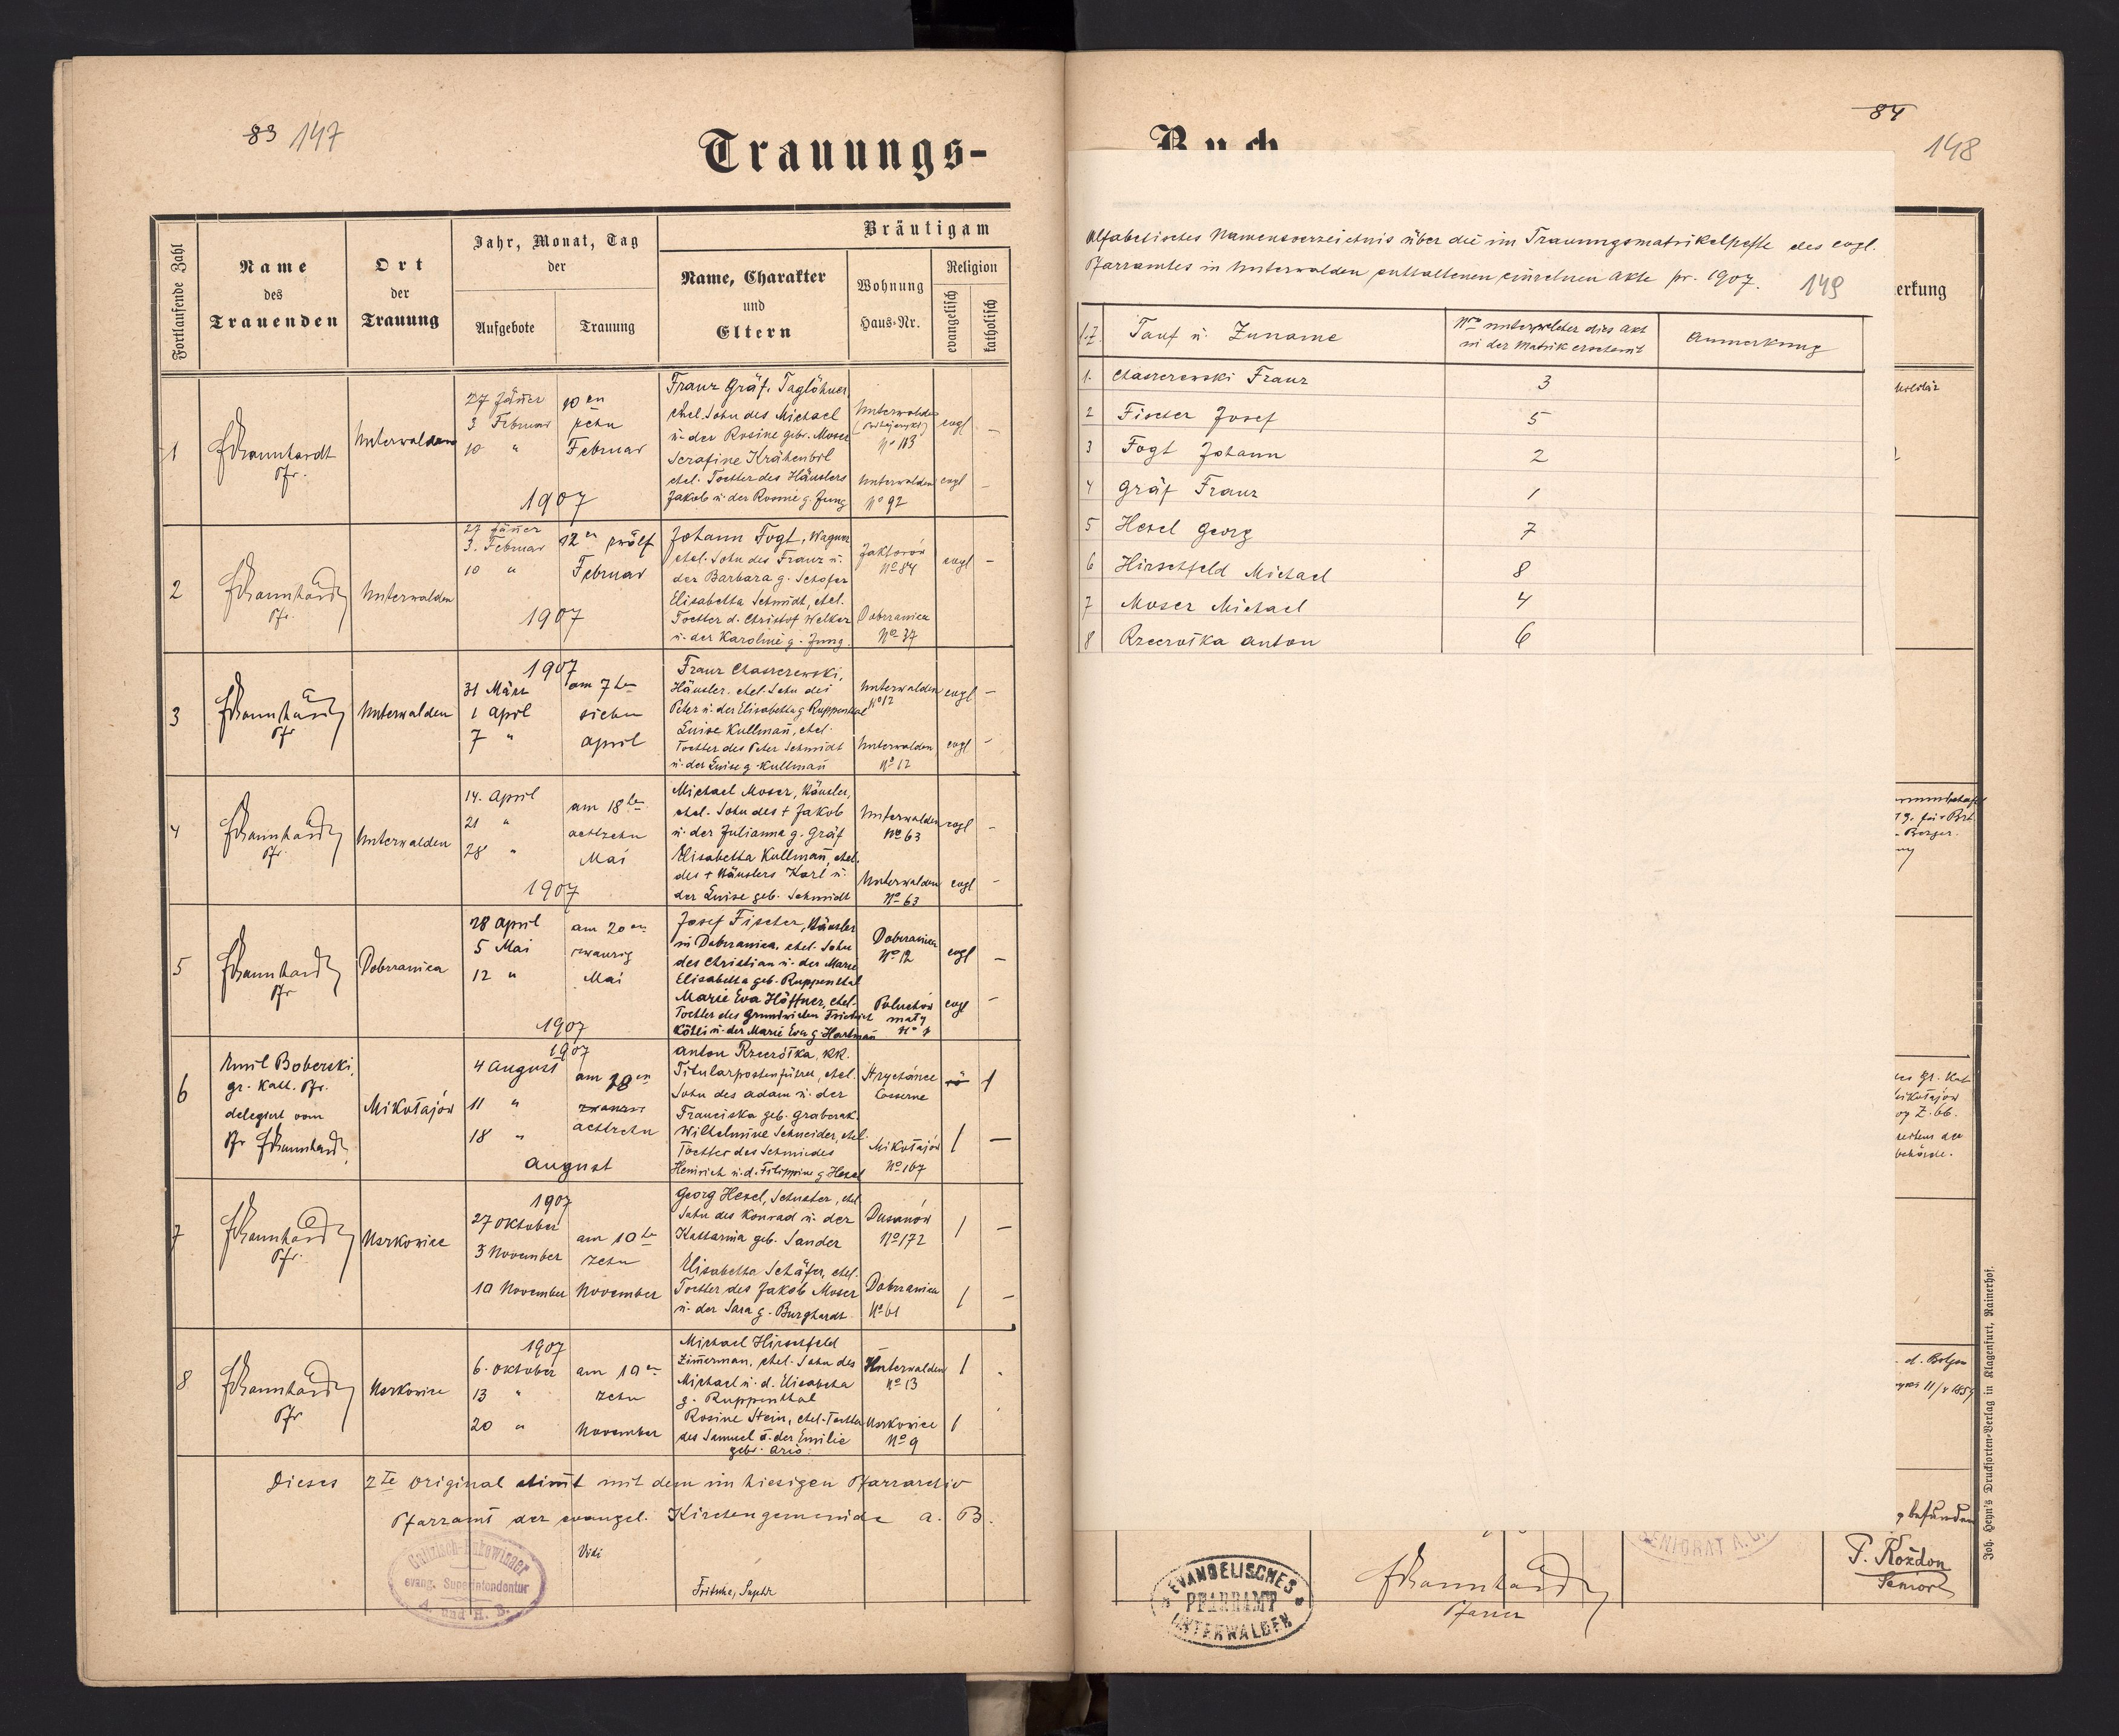 83 147
Trauungs-
Fortlaufende Zahl
Name
des
Trauenden
Ort
der
Trauung
Jahr, Monat, Tag
der
Aufgebote
Trauung
Bräutigam
Name, Charakter
und
Eltern
Wohnung
Haus-Nr.
Religion
evangelisch
katholisch
1
Pfr.
Unterwalden
27 Jäner
3 Februar
10 "
10 en
zehn
Februar
1907
Franz Gräf, Taglöhner
ehel. Sohn des Michael
u. der Rosine geb. Moser
Serafine Krähenbil
ehel. Tochter des Häuslers
Jakob u. der Rosine g. Jung
Unterwalden
No 113
Unterwalden
No 92
evgl -
evgl -
2
Pfr.
Unterwalden
27 Jäner
3. Februar
10 "
12 en zwölf
Februar
1907
Johann Fogt, Wagner
ehel. Sohn des Franz u.
der Barbara g. Schöfer
Elisabetha Schmidt, ehel.
Tochter d. Christof Welker
u. der Karoline g. Jung.
Jaktorów
No 84
Dobrzanica
No 37
evgl -
3
Pfr
Unterwalden
1907
31 März
1 April
7 "
am 7 ten
sieben
April
Franz Chaszczewski,
Häusler, ehel. Sohn des
Peter u. der Elisabetha g Ruppenthal
Luise Kullmañ, ehel.
Tochter des Peter Schmidt
u. der Luise g. Kullmañ
Unterwalden
No 12
Unterwalden
No 12
evgl -
evgl -
4
Pfr.
Unterwalden
14. April
21 "
28 "
am 18 ten
achtzehn
Mai
1907
Michael Moser, Häusler,
ehel. Sohn des + Jakob
u. der Julianna g. Gräf
Elisabetha Kullmañ, ehel.
des + Häuslers Karl u.
der Luise geb. Schmidt
Unterwalden
No 63
Unterwalden
No 63
evgl -
evgl -
5
Pfr
Dobrzanica
28 April
5 Mai
12 "
am 20 en
zwanzig
Mai
1907
Josef Fischer, Häusler
in Dobrzanica, ehel. Sohn
des Christian u. der Marie
Elisabetha geb. Ruppenthal
Marie Eva Höffner, ehel.
Tochter des Grundwirten Friedrich
Köhli u. der Marie Eva g Hartmañ
Dobrzanica
No 12
Poluchów
mały
evgl -
evgl -
6
Emil Boberski,
gr. kath. Pfr.
delegiert vom
Pfr
Mikołajów
1907
4 August
11 "
18 "
August
am 18 en
achtzehn
Anton Rzeczółka, KK.
Titularpostenführer, ehel.
Sohn des Adam u. der
Franciska geb. Graborak.
Wilhelmine Schneider, ehel.
Tochter des Schmiedes
Heinrich u. d. Filippine g Hexel
Mikołajów
No 167
1
1 -
7
Pfr.
Uszkowice
1907
27 Oktober
3 November
10 November
am 10 te
zehn
November
Georg Hexel, Schuster, ehel.
Sohn des Konrad u. der
Katharina geb. Sander
Elisabetha Schäfer, ehel.
Tochter des Jakob Moser
u. der Sara g. Burghardt
Dusanów
No 172
Dobrzanica
No 61
1 -
1 -
8
Pfr
Uszkowice
1907
6. Oktober
13 "
20 "
am 10 en
zehn
November
Michael Hirschfeld
Zimerman, ehel. Sohn des
Michael u. d. Elisabetha
g. Ruppenthal
Rosine Stein, ehel. Tochter
des Samuel u. der Emilie
Unterwalden
No 13
Uszkowice
No 9
1
1
Dieses 2te Original stimt mit dem im hiesigen Pfarrarchiv
Pfarramt der evangel. Kirchengemeinde A. B.
Vidi
Galizisch-Bukowinaer
evang. Superintendentur
A. und H. B.
84
148
Buch
Alfabetisches Namensverzeichnis über die im Trauungsmatrikelhefte des evgl.
Pfarramtes in Unterwalden enthaltenen einzelnen Akte pr. 1907.
149
l.Z.
Tauf u. Zuname
No unter welcher dies Akt
in der Matrik erscheint
Anmerkung
1. Chaszczewski Franz 3
2 Fischer Josef 5
3 Fogt Johann 2
4 Gräf Franz 1
5 Hexel Georg 7
6 Hirschfeld Michael 8
7 Moser Michael 4
8 Rzeczółka Anton 6
erkung
SENIORAT A.
EVANGELISCHES
PFARRAMT
UNTERWALDEN
Pfarrer
befunden
P. Rozdon
Senior
Joh. Heyn's Drucksorten-Verlag in Klagenfurt, Rainerhof.